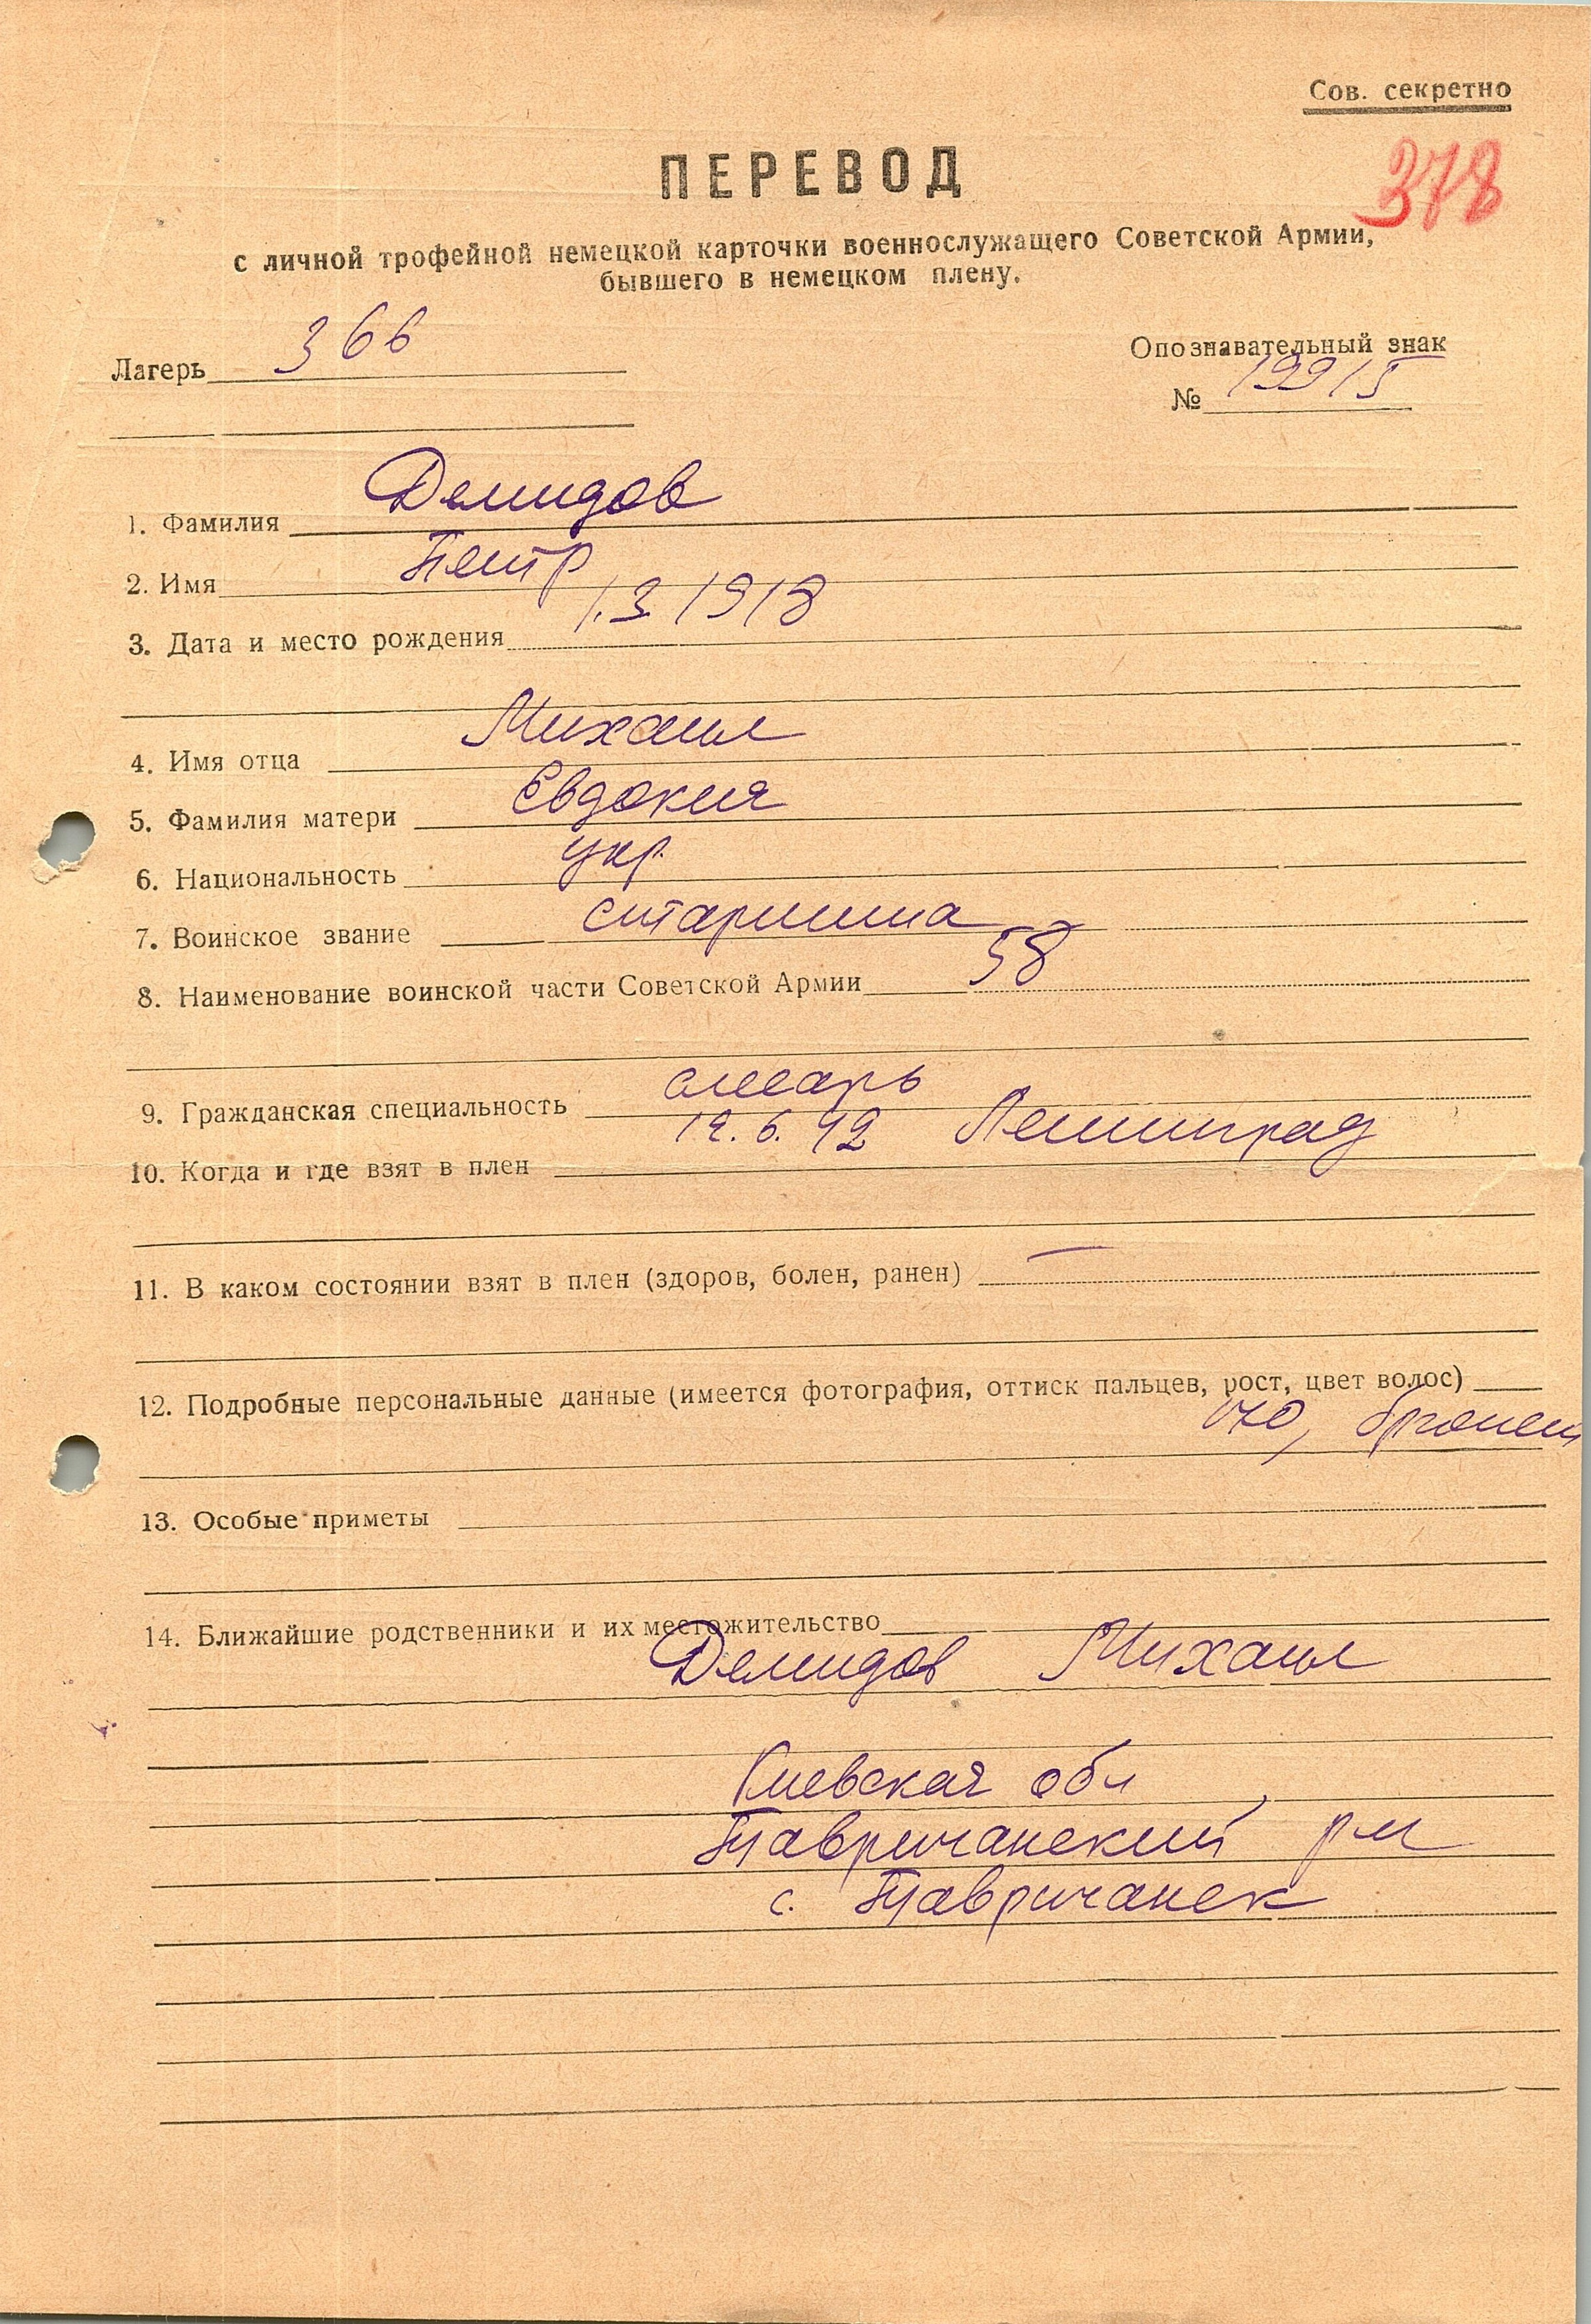 Сов. секретно
ПЕРЕВОД
378
с личной трофейной немецкой карточки военнослужащего Советской Армии,
бывшего в немецком плену.
Лагерь 366
Опознавательный знак
№ 19915
1. Фамилия Демидов
2. Имя Петр
3. Дата и место рождения 1.3.1918
4. Имя отца Михаил
5. Фамилия матери Евдокия
6. Национальность укр.
7. Воинское звание старшина
8. Наименование воинской части Советской Армии 58
9. Гражданская специальность слесарь
10. Когда и где взят в плен 12.6.42 Ленинград
11. В каком состоянии взят в плен (здоров, болен, ранен) —
12. Подробные персональные данные (имеется фотография, оттиск пальцев, рост, цвет волос)
170, брюнет
13. Особые приметы
14. Ближайшие родственники и их местожительство
Демидов Михаил
Киевская обл
Тавричанский р-н
с. Тавричанск